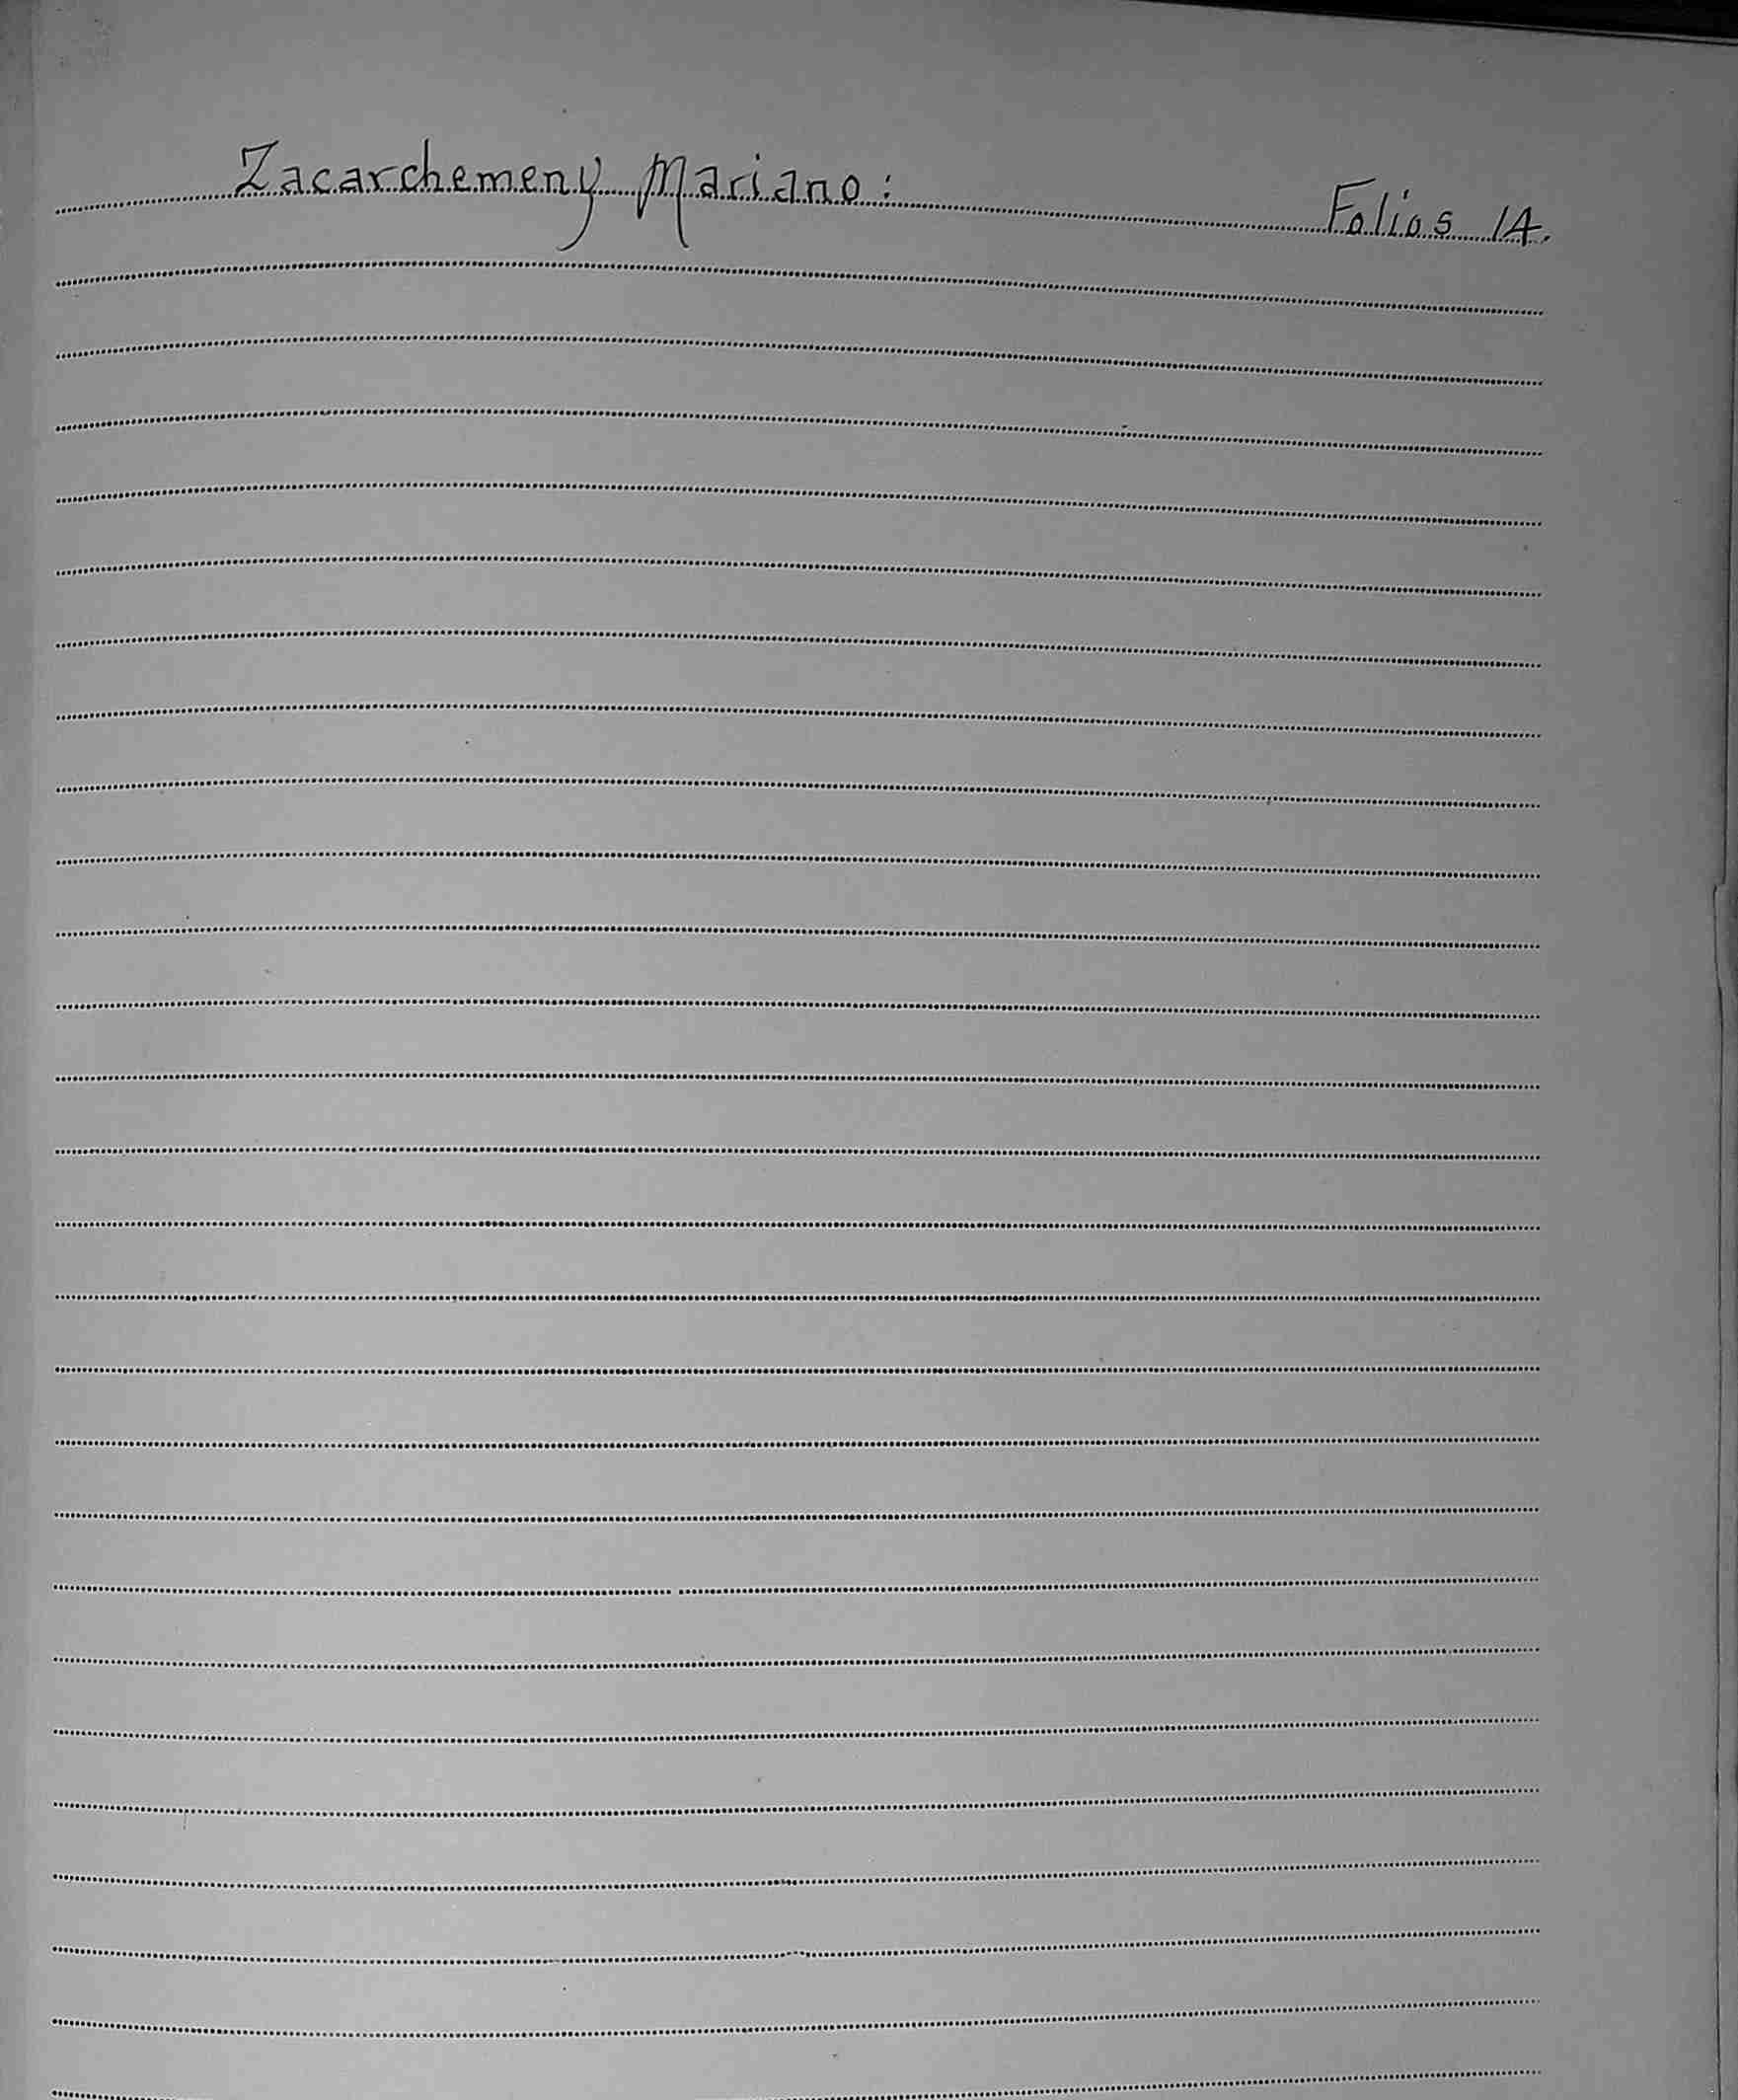 Zacarchemeny Mariano: Folios 14.